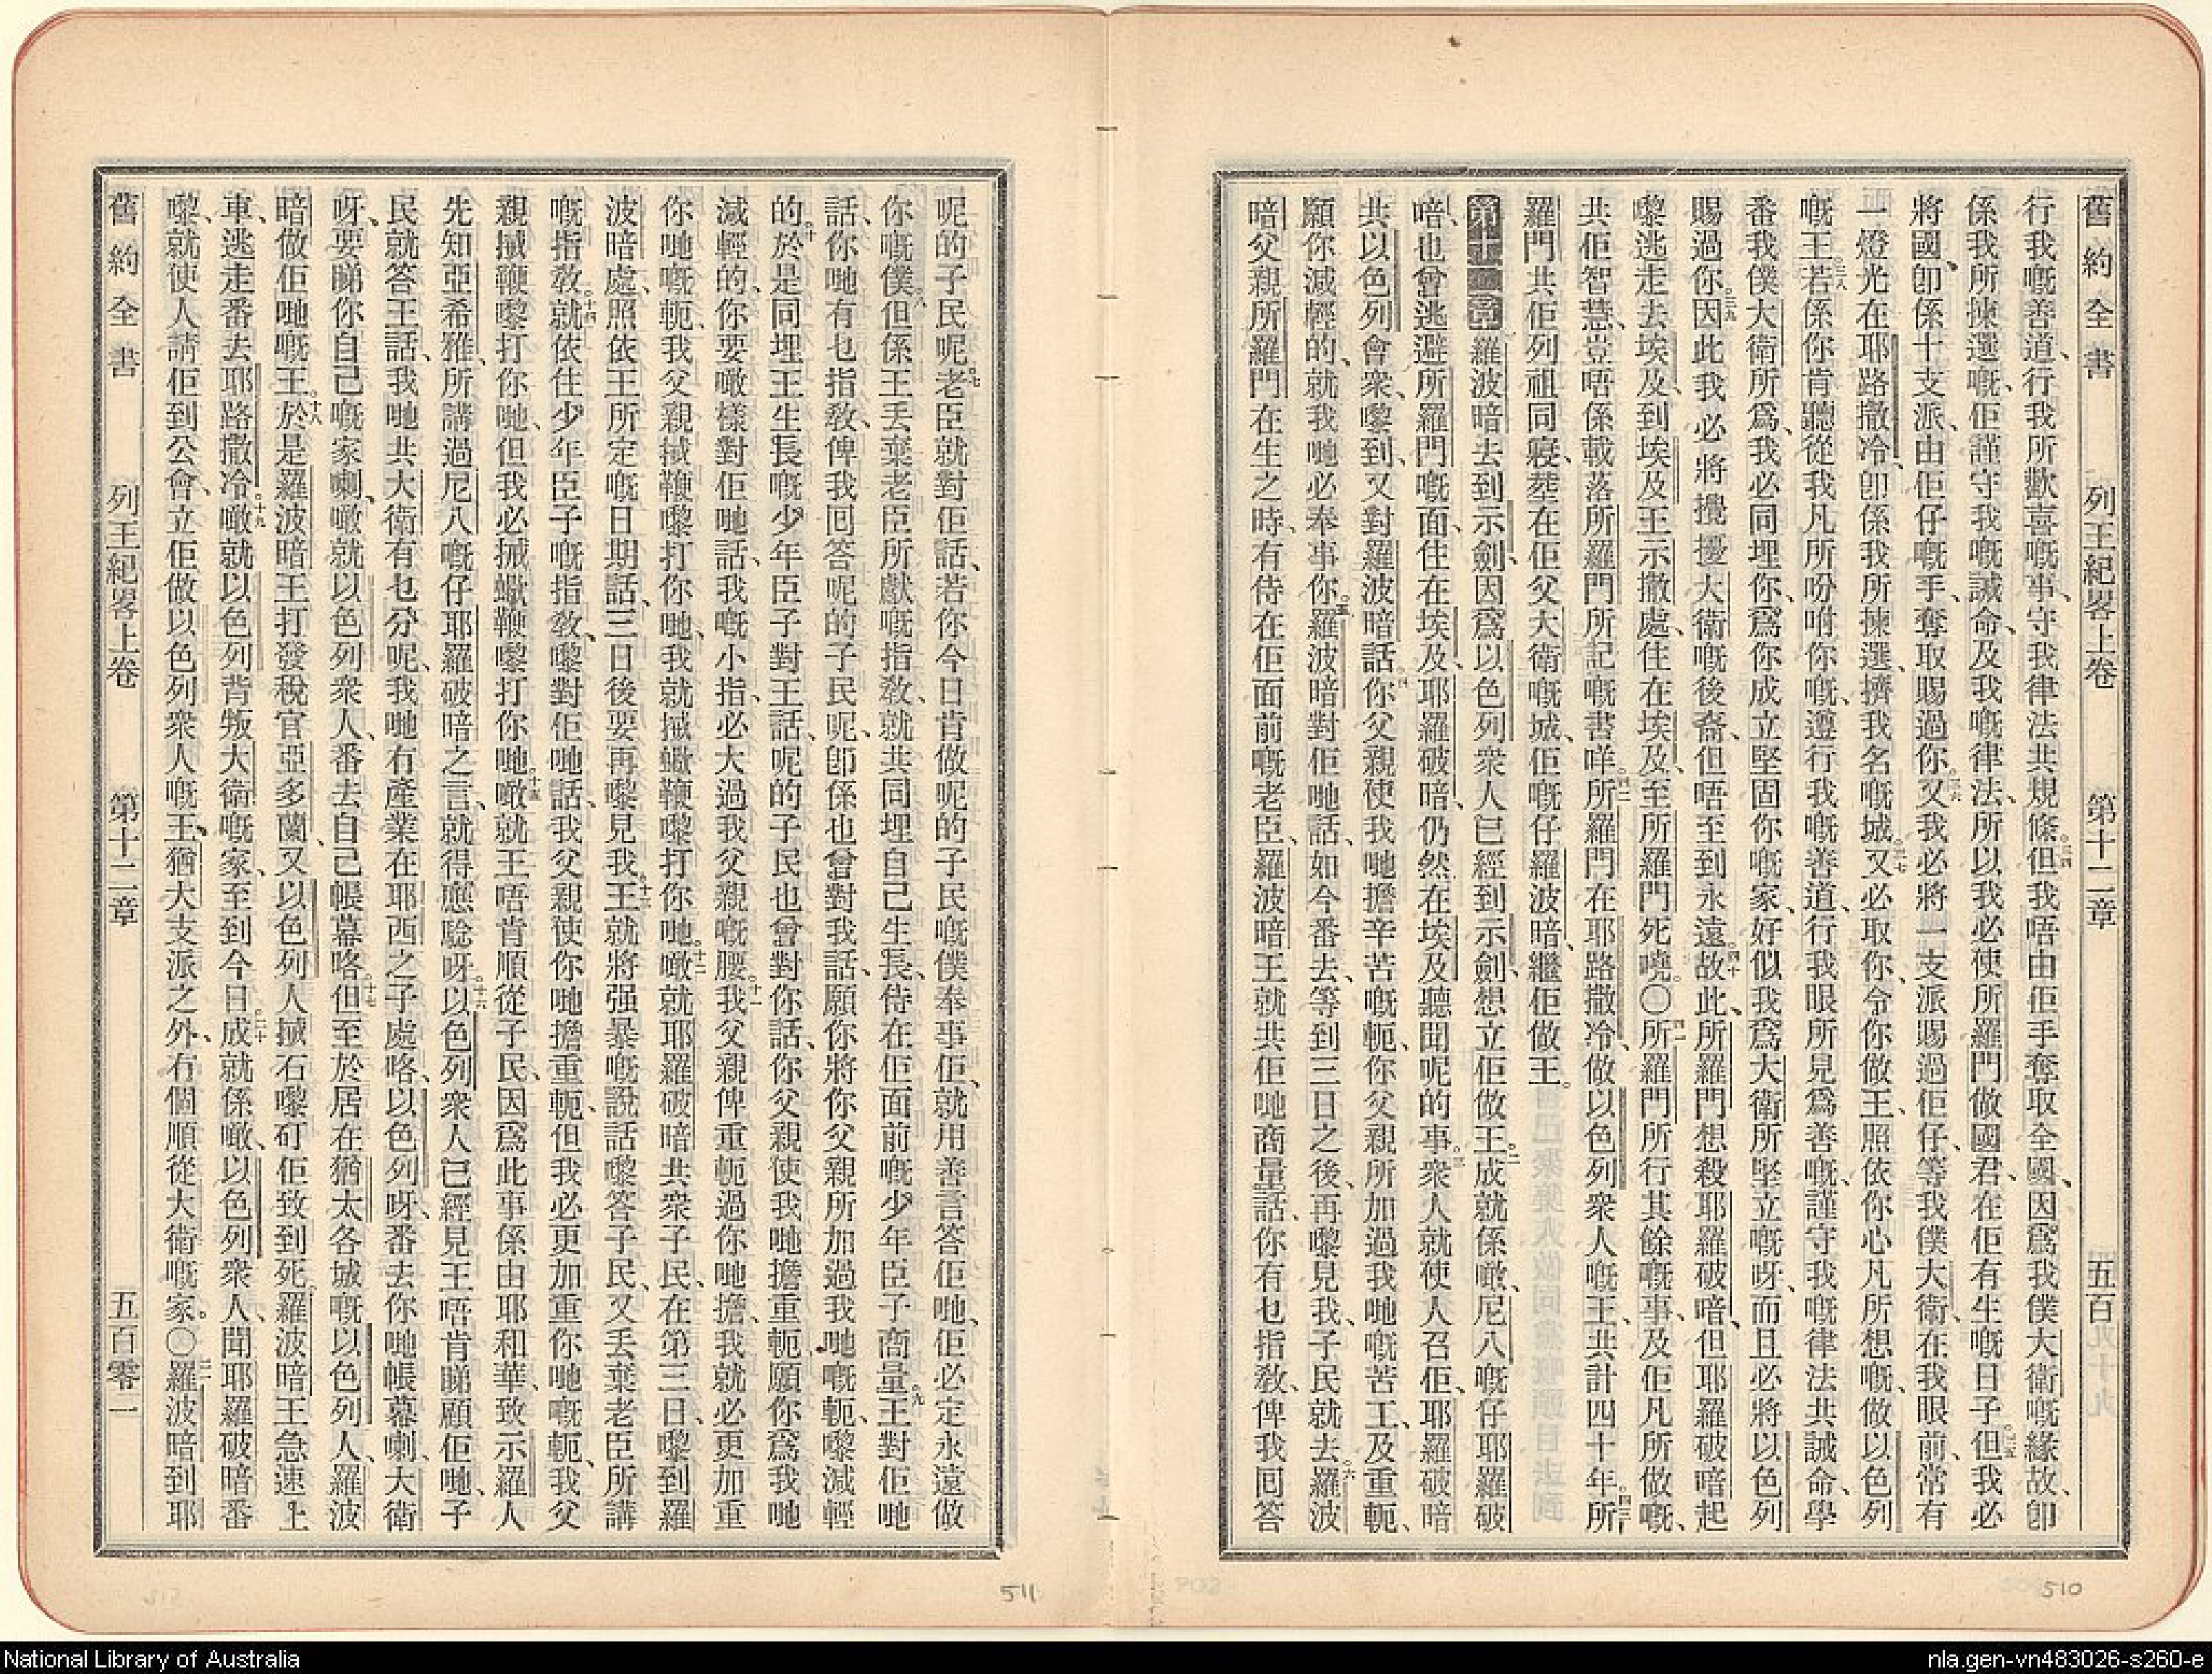 舊約全書　列王紀畧上卷　第十二章　五百
行我嘅善道、行我所歡喜嘅事、守我律法共規條。三四但我唔由佢手奪取全國、因爲我僕大衛嘅緣故、卽
係我所揀選嘅、佢謹守我嘅誡命、及我嘅律法、所以我必使所羅門做國君、在佢有生嘅日子。三五但我必
將國、卽係十支派、由佢仔嘅手、奪取賜過你。三六又我必將一支派賜過佢仔、等我僕大衛、在我眼前、常有
一燈光在耶路撒冷、卽係我所揀選、擠我名嘅城。三七又必取你、令你做王、照依你心凡所想嘅、做以色列
嘅王。三八若係你肯聽從我凡所吩咐你嘅、遵行我嘅善道、行我眼所見爲善嘅、謹守我嘅律法共誡命、學
番我僕大衛所爲、我必同埋你、爲你成立堅固你嘅家、好似我爲大衛所堅立嘅呀、而且必將以色列
賜過你。三九因此我必將攪擾大衛嘅後裔、但唔至到永遠。四十故此、所羅門想殺耶羅破暗、但耶羅破暗起
嚟逃走去埃及、到埃及王示撒處、住在埃及、至所羅門死嘵。〇四一所羅門所行其餘嘅事、及佢凡所做嘅、
共佢智慧、豈唔係載落所羅門所記嘅書咩。四二所羅門在耶路撒冷、做以色列衆人嘅王、共計四十年。四三所
羅門共佢列祖同寢、塟在佢父大衛嘅城、佢嘅仔羅波暗、繼佢做王。
第十二章　羅波暗去到示劍、因爲以色列衆人已經到示劍、想立佢做王。二成就係噉、尼八嘅仔耶羅破
暗、也曾逃避所羅門嘅面、住在埃及、耶羅破暗、仍然在埃及聽聞呢的事。三衆人就使人召佢、耶羅破暗
共以色列會衆、嚟到、又對羅波暗話。四你父親使我哋擔辛苦嘅軛、你父親所加過我哋嘅苦工、及重軛、
願你減輕的、就我哋必奉事你。五羅波暗對佢哋話、如今番去、等到三日之後、再嚟見我、子民就去。六羅波
暗父親所羅門在生之時、有侍在佢面前嘅老臣、羅波暗王就共佢哋商量話、你有乜指敎、俾我囘答
呢的子民呢。七老臣就對佢話、若你今日肯做呢的子民嘅僕奉事佢、就用善言答佢哋、佢必定永遠做
你嘅僕。八但係王丟棄老臣所獻嘅指敎、就共同埋自己生長、侍在佢面前嘅少年臣子商量。九王對佢哋
話、你哋有乜指敎、俾我囘答呢的子民呢、卽係也曾對我話、願你將你父親所加過我哋嘅軛、嚟減輕
的。十於是同埋王生長嘅少年臣子對王話、呢的子民也曾對你話、你父親使我哋擔重軛、願你爲我哋
減輕的、你要噉樣對佢哋話、我嘅小指、必大過我父親嘅腰。十一我父親俾重軛過你哋擔、我就必更加重
你哋嘅軛、我父親搣鞭嚟打你哋、我就搣蠍鞭嚟打你哋。十二噉就耶羅破暗共衆子民、在第三日、嚟到羅
波暗處、照依王所定嘅日期話、三日後要再嚟見我。十三王就將强暴嘅說話嚟答子民、又丟棄老臣所講
嘅指敎。十四就依住少年臣子嘅指敎、嚟對佢哋話、我父親使你哋擔重軛、但我必更加重你哋嘅軛、我父
親搣鞭嚟打你哋、但我必搣蠍鞭嚟打你哋。十五噉就王唔肯順從子民、因爲此事係由耶和華、致示羅人
先知亞希雅、所講過尼八嘅仔耶羅破暗之言、就得應騐呀。十六以色列衆人已經見王唔肯睇顧佢哋、子
民就答王話、我哋共大衛有乜分呢、我哋冇產業在耶西之子處咯、以色列呀、番去你哋帳幕喇、大衛
呀、要睇你自己嘅家喇、噉就以色列衆人、番去自己帳幕咯。十七但至於居在猶太各城嘅以色列人、羅波
暗做佢哋嘅王。十八於是羅波暗王打發稅官亞多蘭、又以色列人搣石嚟矴佢致到死。羅波暗王急速上
車、逃走番去耶路撒冷。十九噉就以色列背叛大衛嘅家、至到今日。二十成就係噉、以色列衆人、聞耶羅破暗番
嚟、就使人請佢到公會、立佢做以色列衆人嘅王、猶大支派之外、冇個順從大衛嘅家。〇二一羅波暗到耶
舊約全書　列王紀畧上卷　第十二章　五百零一
510
511
National Library of Australia
nla.gen-vn483026-s260-e